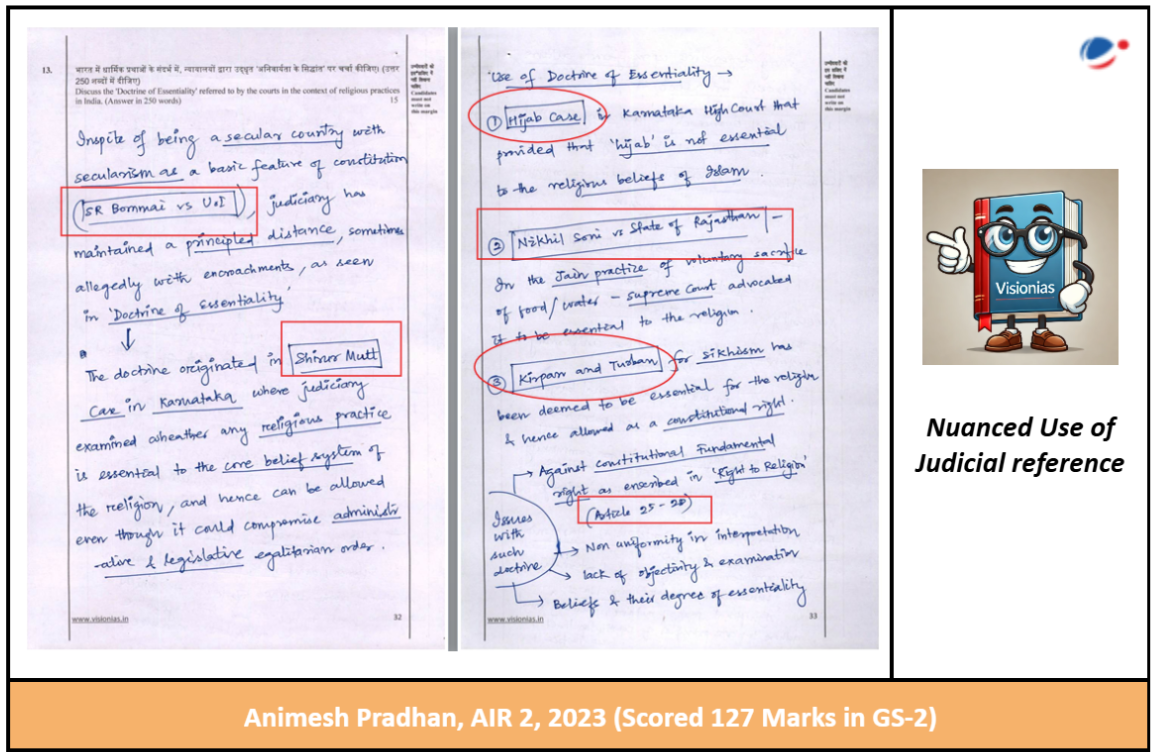 13.
भारत में धार्मिक प्रथाओं के संदर्भ में, न्यायालयों द्वारा उद्धृत 'अनिवार्यता के सिद्धांत' पर चर्चा कीजिए। (उत्तर
250 शब्दों में दीजिए)
Discuss the 'Doctrine of Essentiality' referred to by the courts in the context of religious practices
in India. (Answer in 250 words) 15
उम्मीदवारों को
इस हाशिए में
नहीं लिखना
चाहिए
Candidates
must not
write on
this margin
Inspite of being a secular country with
secularism as a basic feature of constitution
(SR Bommai vs UoI), judiciary has
maintained a principled distance, sometimes
allegedly with encroachments, as seen
in 'Doctrine of Essentiality'
The doctrine originated in Shirur Mutt
Case in Karnataka where judiciary
examined wheather any religious practice
is essential to the core belief system of
the religion, and hence can be allowed
even though it could compromise administr
-ative & legislative egalitarian order.
www.visionias.in
32
उम्मीदवारों को
इस हाशिए में
नहीं लिखना
चाहिए
Candidates
must not
write on
this margin
'Use of Doctrine of Essentiality →
① Hijab Case in Karnataka High Court that
provided that 'hijab' is not essential
to the religious beliefs of Islam.
② Nikhil Soni vs State of Rajasthan –
In the Jain practice of voluntary sacrifice
of food/water – supreme court advocated
it to be essential to the religion.
③ Kirpan and Turban for sikhism has
been deemed to be essential for the religion
& hence allowed as a constitutional right.
Issues
with
such
doctrine
→ Against constitutional Fundamental
right as enscribed in 'Right to Religion'
(Article 25-28)
→ Non uniformity in interpretation
→ lack of objectivity & examination
→ Beliefs & their degree of essentiality
www.visionias.in
33
Visionias
Nuanced Use of
Judicial reference
Animesh Pradhan, AIR 2, 2023 (Scored 127 Marks in GS-2)